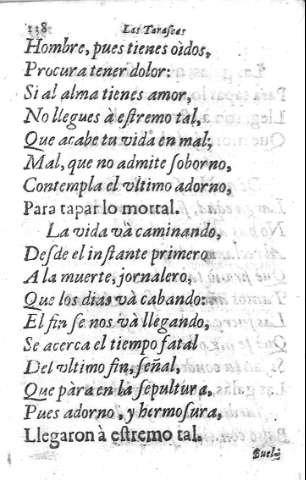 138 Las Tarascas
Hombre, pues tienes oìdos,
Procura tener dolor:
Si al alma tienes amor,
No llegues à eſtremo tal,
Que acabe tu vida en mal;
Mal, que no admite ſoborno,
Contempla el vltimo adorno,
Para tapar lo mortal.
La vida và caminando,
Deſde el inſtante primero
A la muerte, jornalero,
Que los dias và cabando:
El fin ſe nos và llegando,
Se acerca el tiempo fatal
Del vltimo fin, ſeñal,
Que pàra en la ſepultura,
Pues adorno, y hermoſura,
Llegaron à eſtremo tal.
Buel-